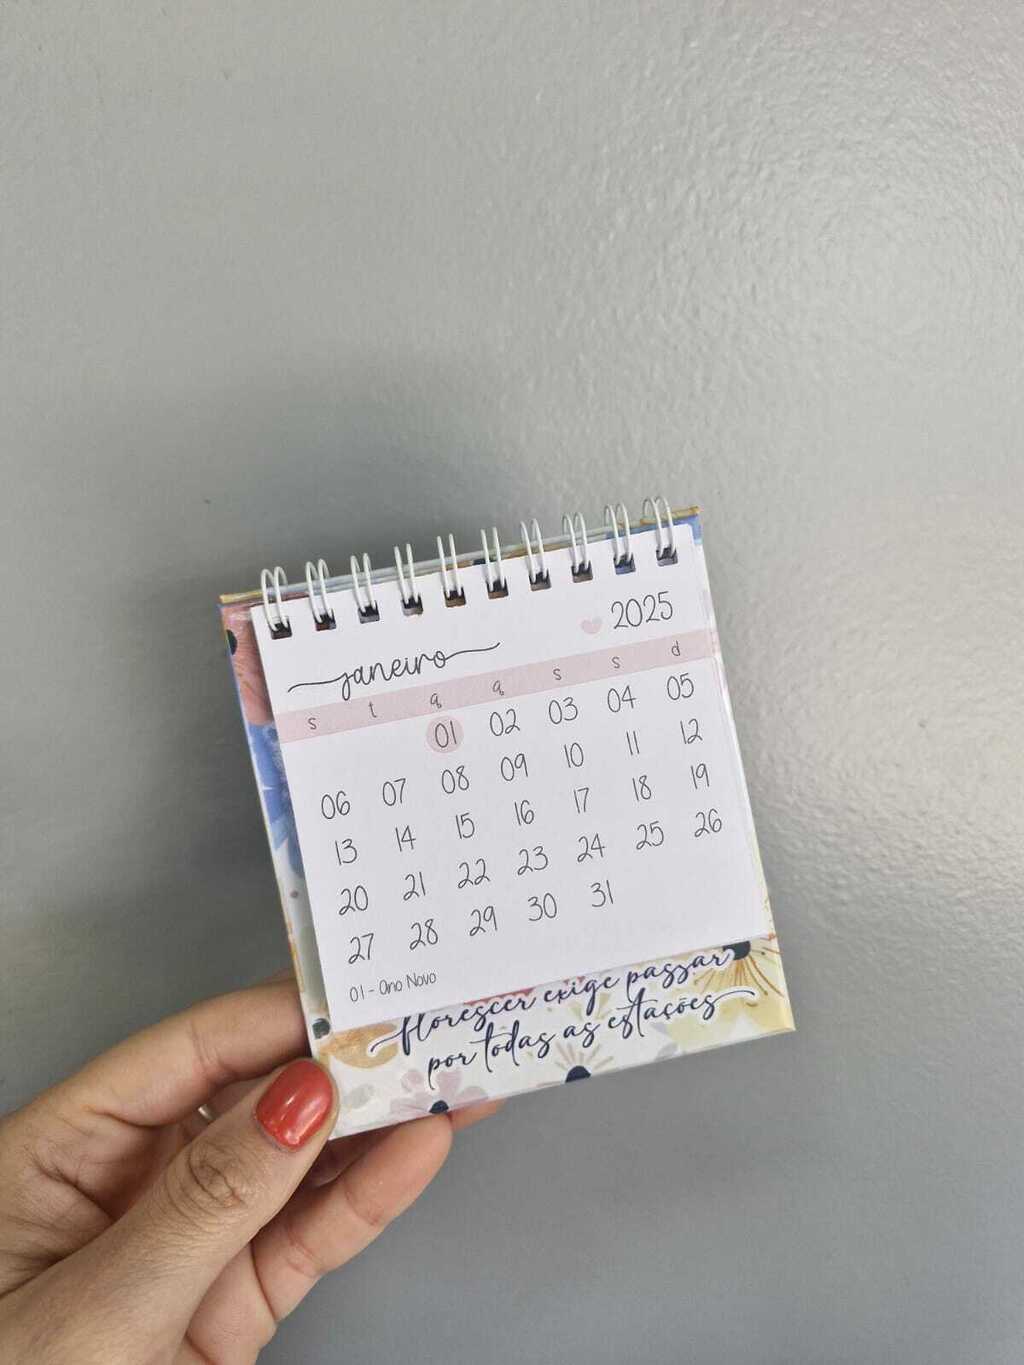 2025
janeiro
s t q q s s d
01 02 03 04 05
06 07 08 09 10 11 12
13 14 15 16 17 18 19
20 21 22 23 24 25 26
27 28 29 30 31
01 - Ano Novo
florescer exige passar
por todas as estações